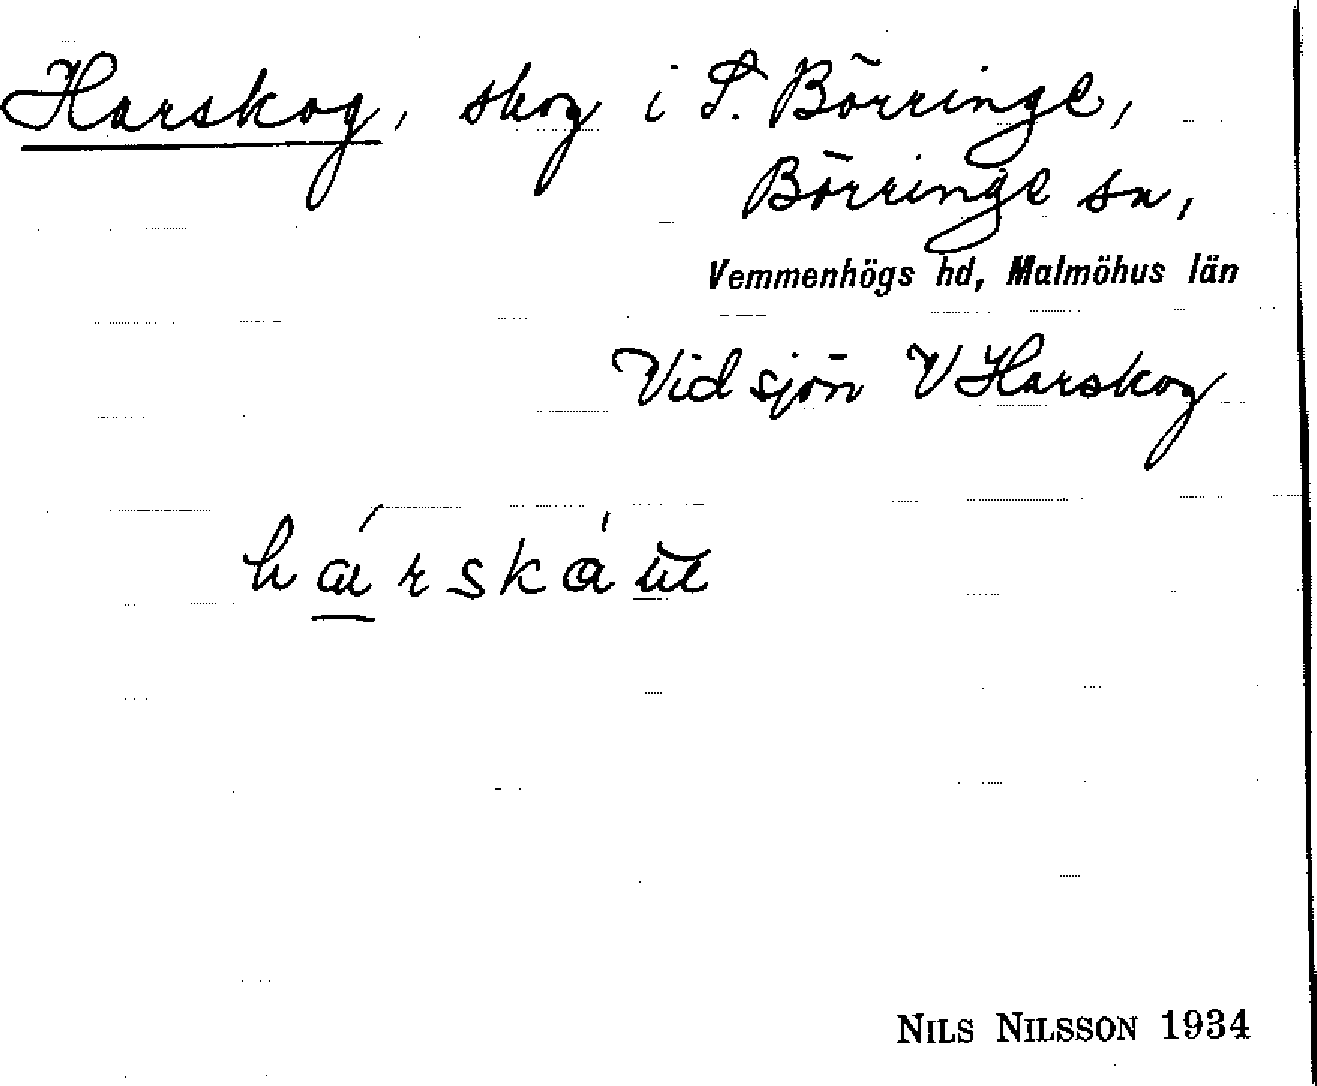 Harskog, skog i S. Börringe,
Börringe sn,
Vemmenhögs hd, Malmöhus län
Vid sjön V Harskog
NILS NILSSON 1934